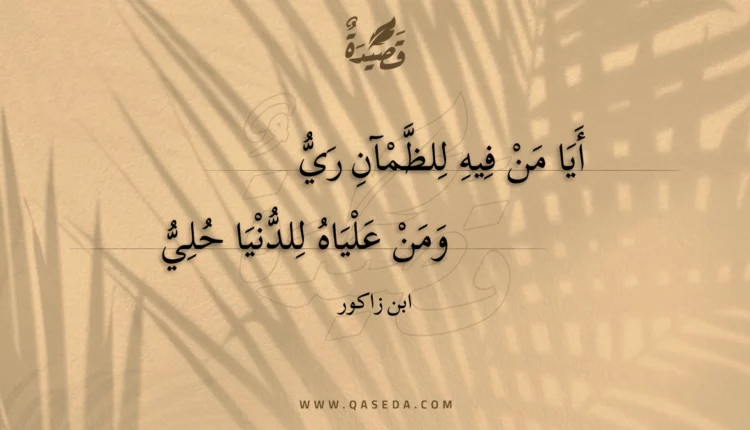 قَصِيدَةٌ
أَيَا مَنْ فِيهِ لِلظَّمْآنِ رَيُّ
وَمَنْ عَلْيَاهُ لِلدُّنْيَا حُلِيُّ
ابن زاكور
WWW.QASEDA.COM